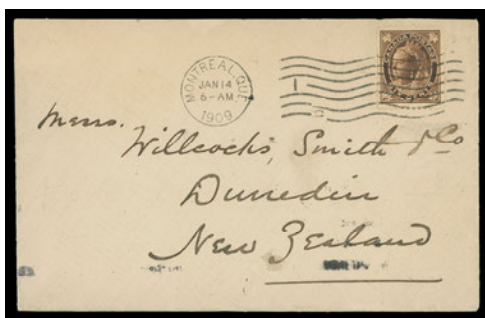 MONTREAL, QUE.
JAN 14
6-AM
1909
Messrs.
Willcocks, Smith & Co
Dunedin
New Zealand